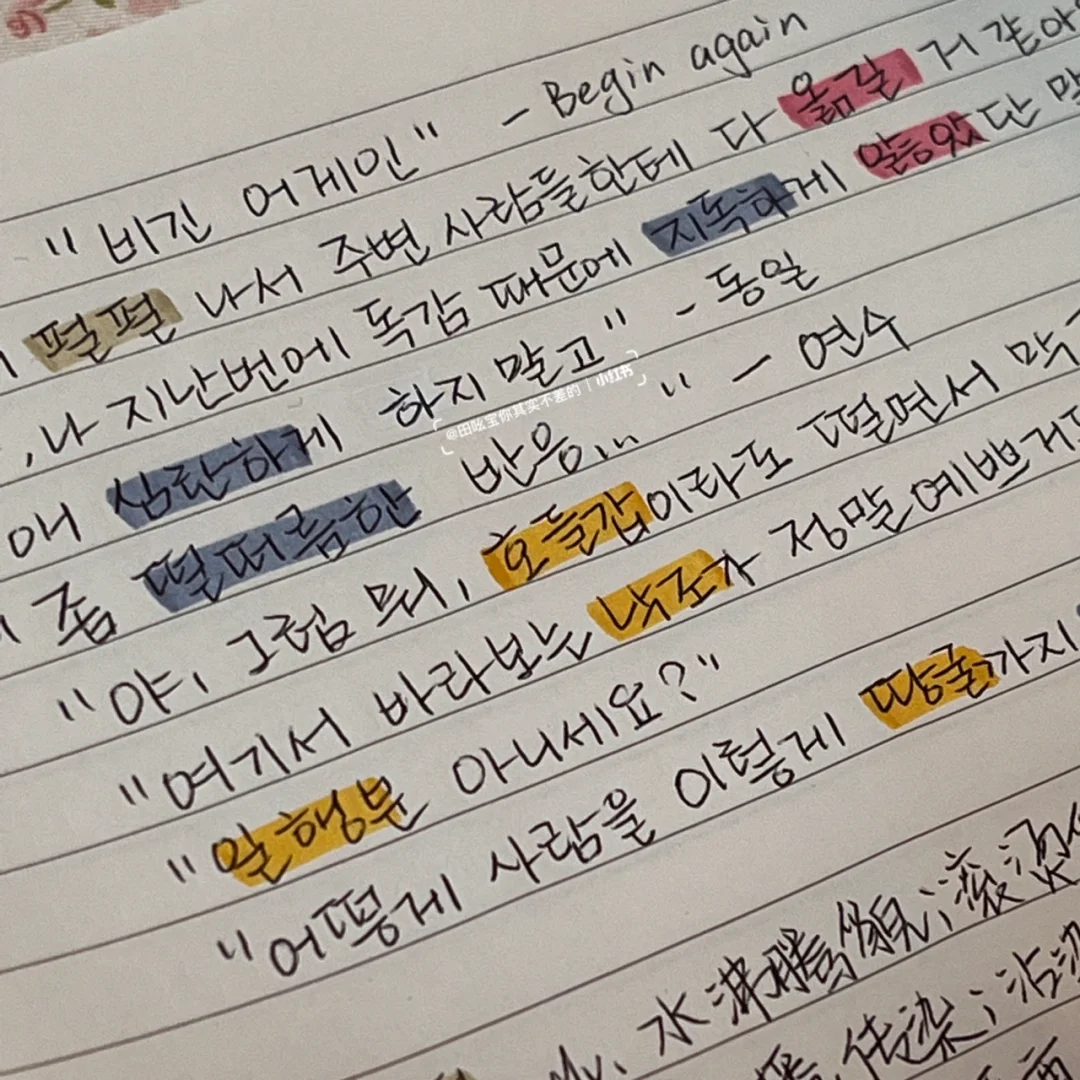 "비긴 어게인" - Begin again
펄펄 나서 주변 사람들한테 다 옮길 거 같아
, 나 지난번에 독감 때문에 지독하게 앓았단 말
애 심란하게 하지 말고" - 동일
좀 떨떠름한 반응..." - 연수
"야, 그럼 뭐, 호들갑이라도 떨면서 막
"여기서 바라보는 낙조가 정말 예쁘거든
"일행분 아니세요?"
"어떻게 사람을 이렇게 땅굴까지
水沸腾貌; 滚烫
传染; 沾染
@田吆宝你其实不差的 | 小红书